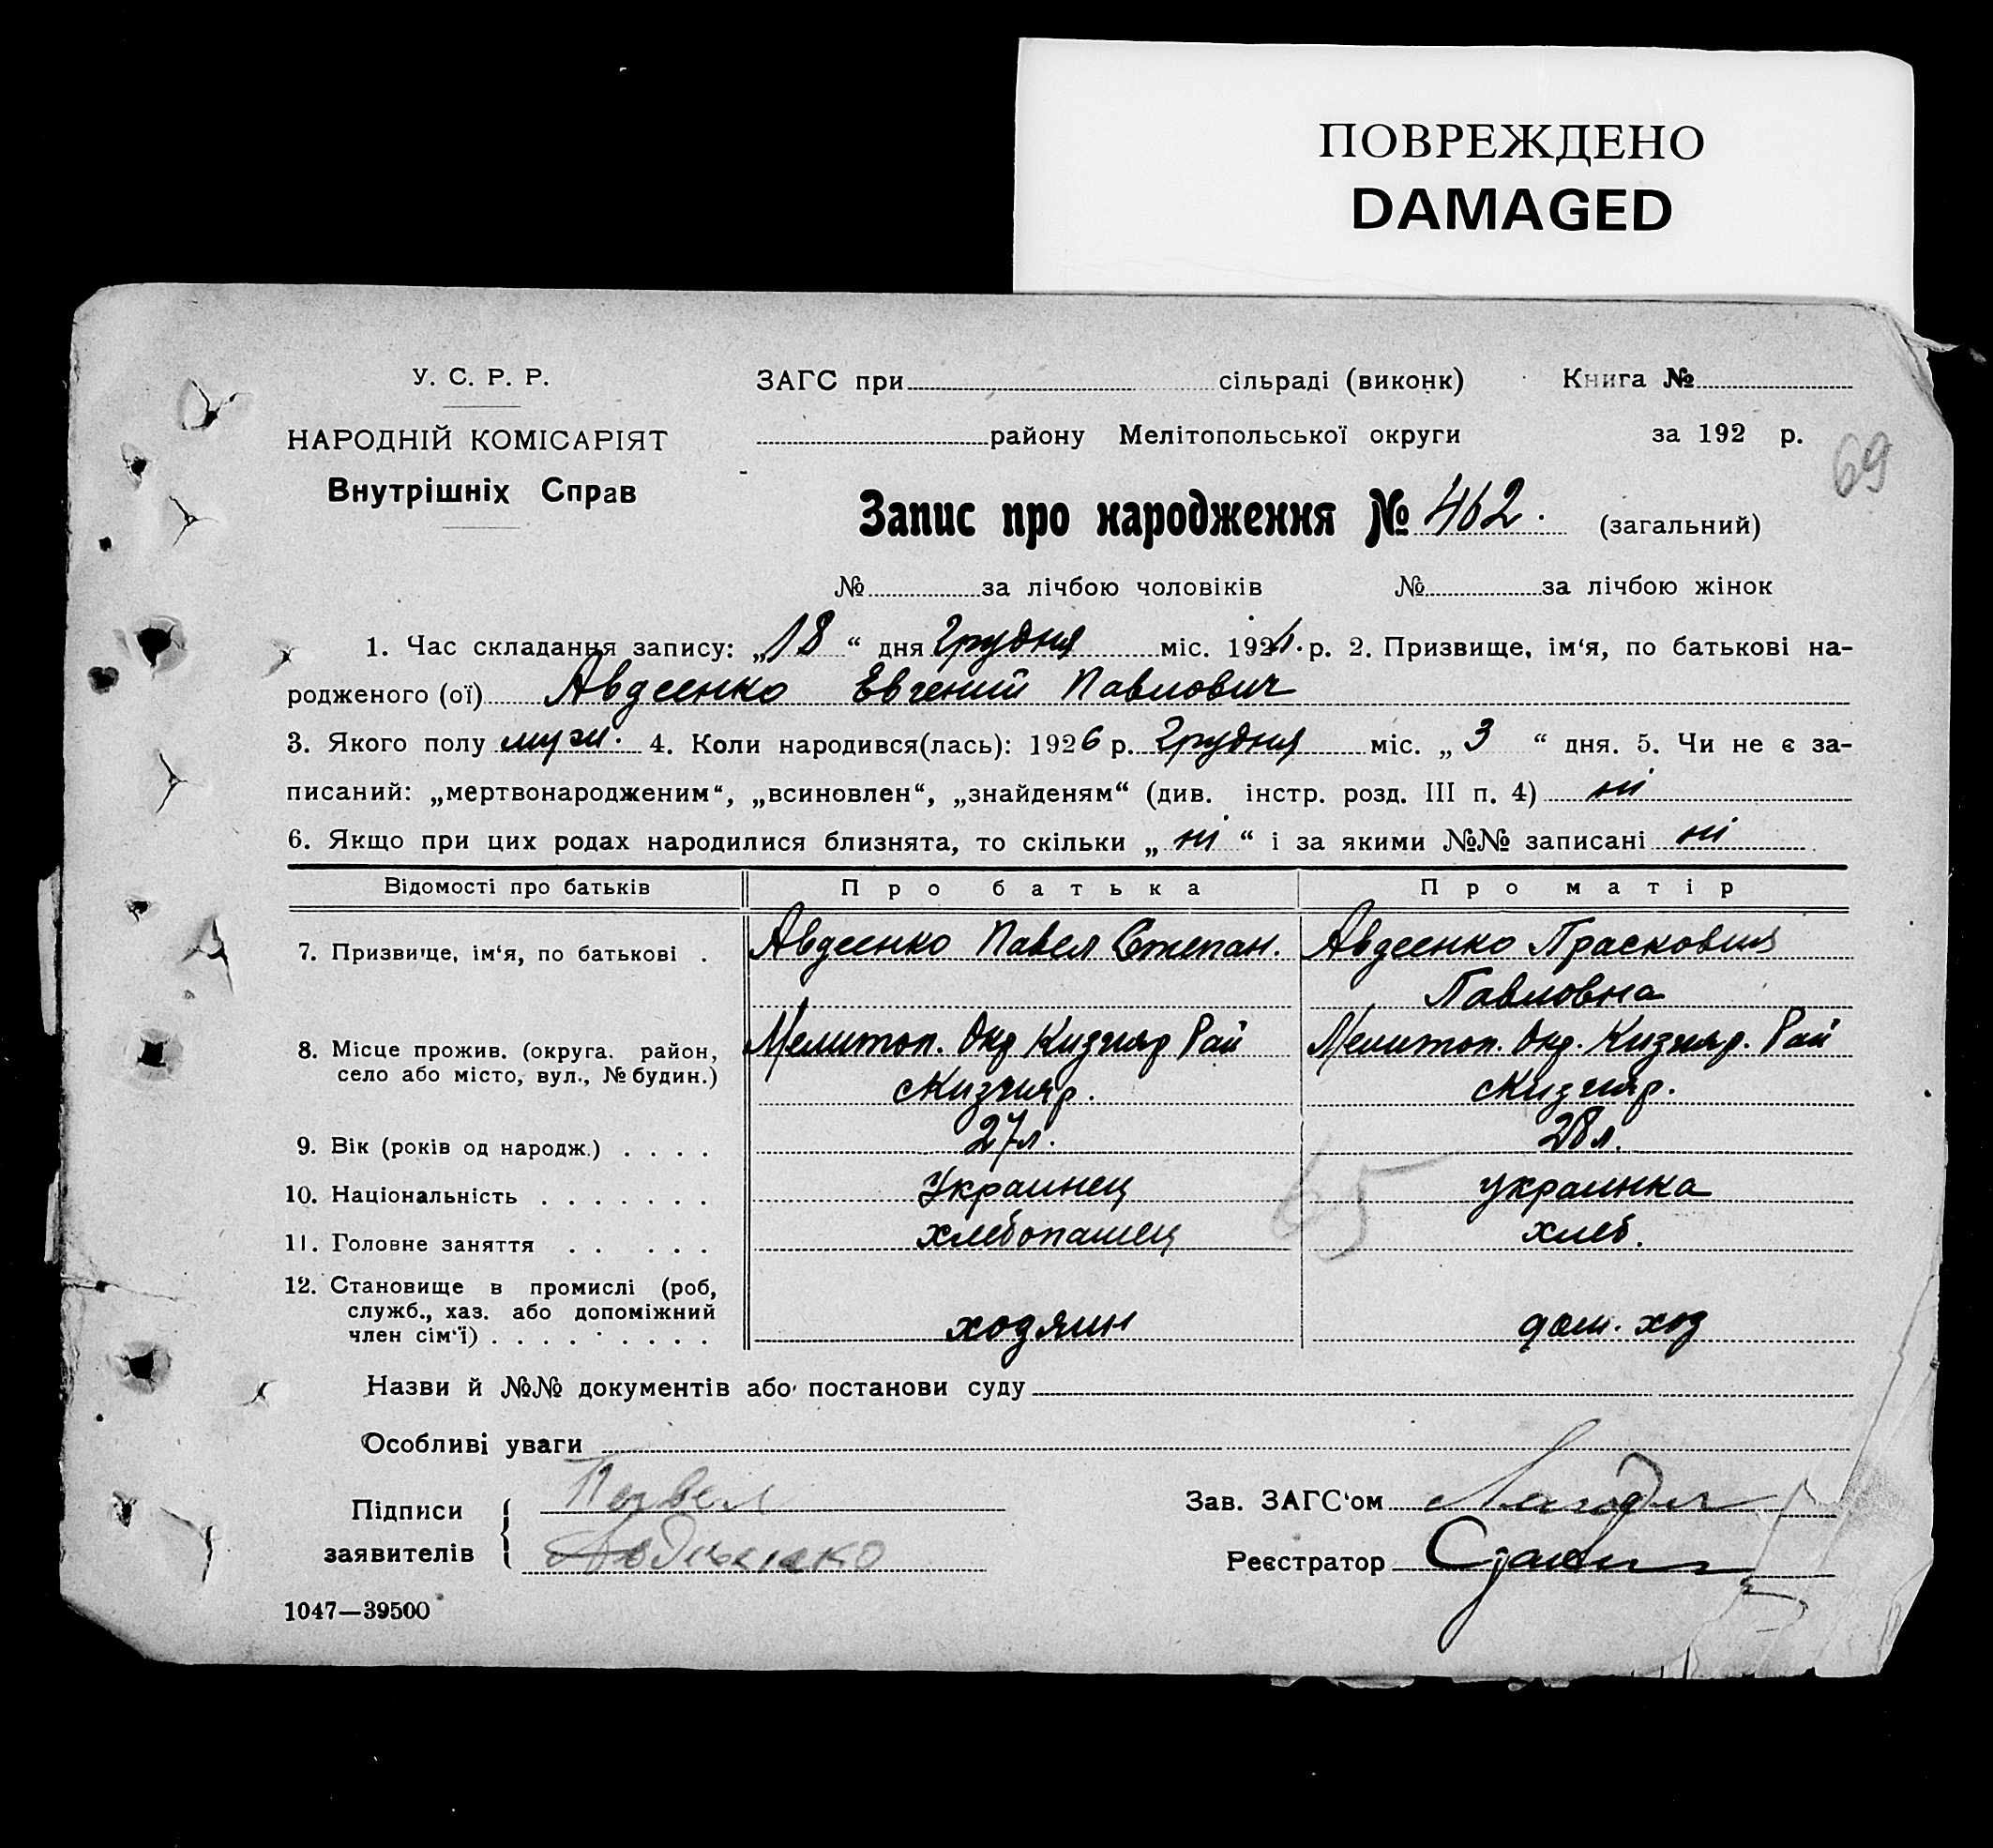 ПОВРЕЖДЕНО
DAMAGED
У. С. Р. Р.
НАРОДНІЙ КОМІСАРІЯТ
Внутрішніх Справ
ЗАГС при сільраді (виконк) Книга №
району Мелітопольської округи за 192 р.
69
Запис про народження № 462. (загальний)
№ за лічбою чоловіків № за лічбою жінок
1. Час складання запису: „18“ дня Грудня міс. 192 р. 2. Призвище, ім‘я, по батькові на-
родженого (ої) Авдеенко Евгений Павлович
3. Якого полу муж. 4. Коли народився(лась): 1926 р. Грудня міс. „3“ дня. 5. Чи не є за-
писаний: „мертвонародженим“, „всиновлен“, „знайденям“ (див. інстр. розд. III п. 4) ні
6. Якщо при цих родах народилися близнята, то скільки „ні“ і за якими №№ записані ні
Відомості про батьків Про батька Про матір
7. Призвище, ім‘я, по батькові . Авдеенко Павел Степан. Авдеенко Прасковия
Павловна
8. Місце прожив. (округа. район, Мелитоп. Окр Кизияр Рай Мелитоп. Окр. Кизияр. Рай
село або місто, вул., № будин.) с Кизияр. с Кизияр.
9. Вік (років од народж.) . . . . 27 л. 28 л.
10. Національність . . . . . . . Украинец украинка
11. Головне заняття . . . . . хлебопашец хлеб.
12. Становище в промислі (роб,
служб., хаз. або допоміжний
член сім‘ї) . . . . . . . . . ходяин дом. ход
65
Назви й №№ документів або постанови суду
Особливі уваги
Підписи заявителів Павел
Зав. ЗАГС‘ом
Реєстратор
1047—39500